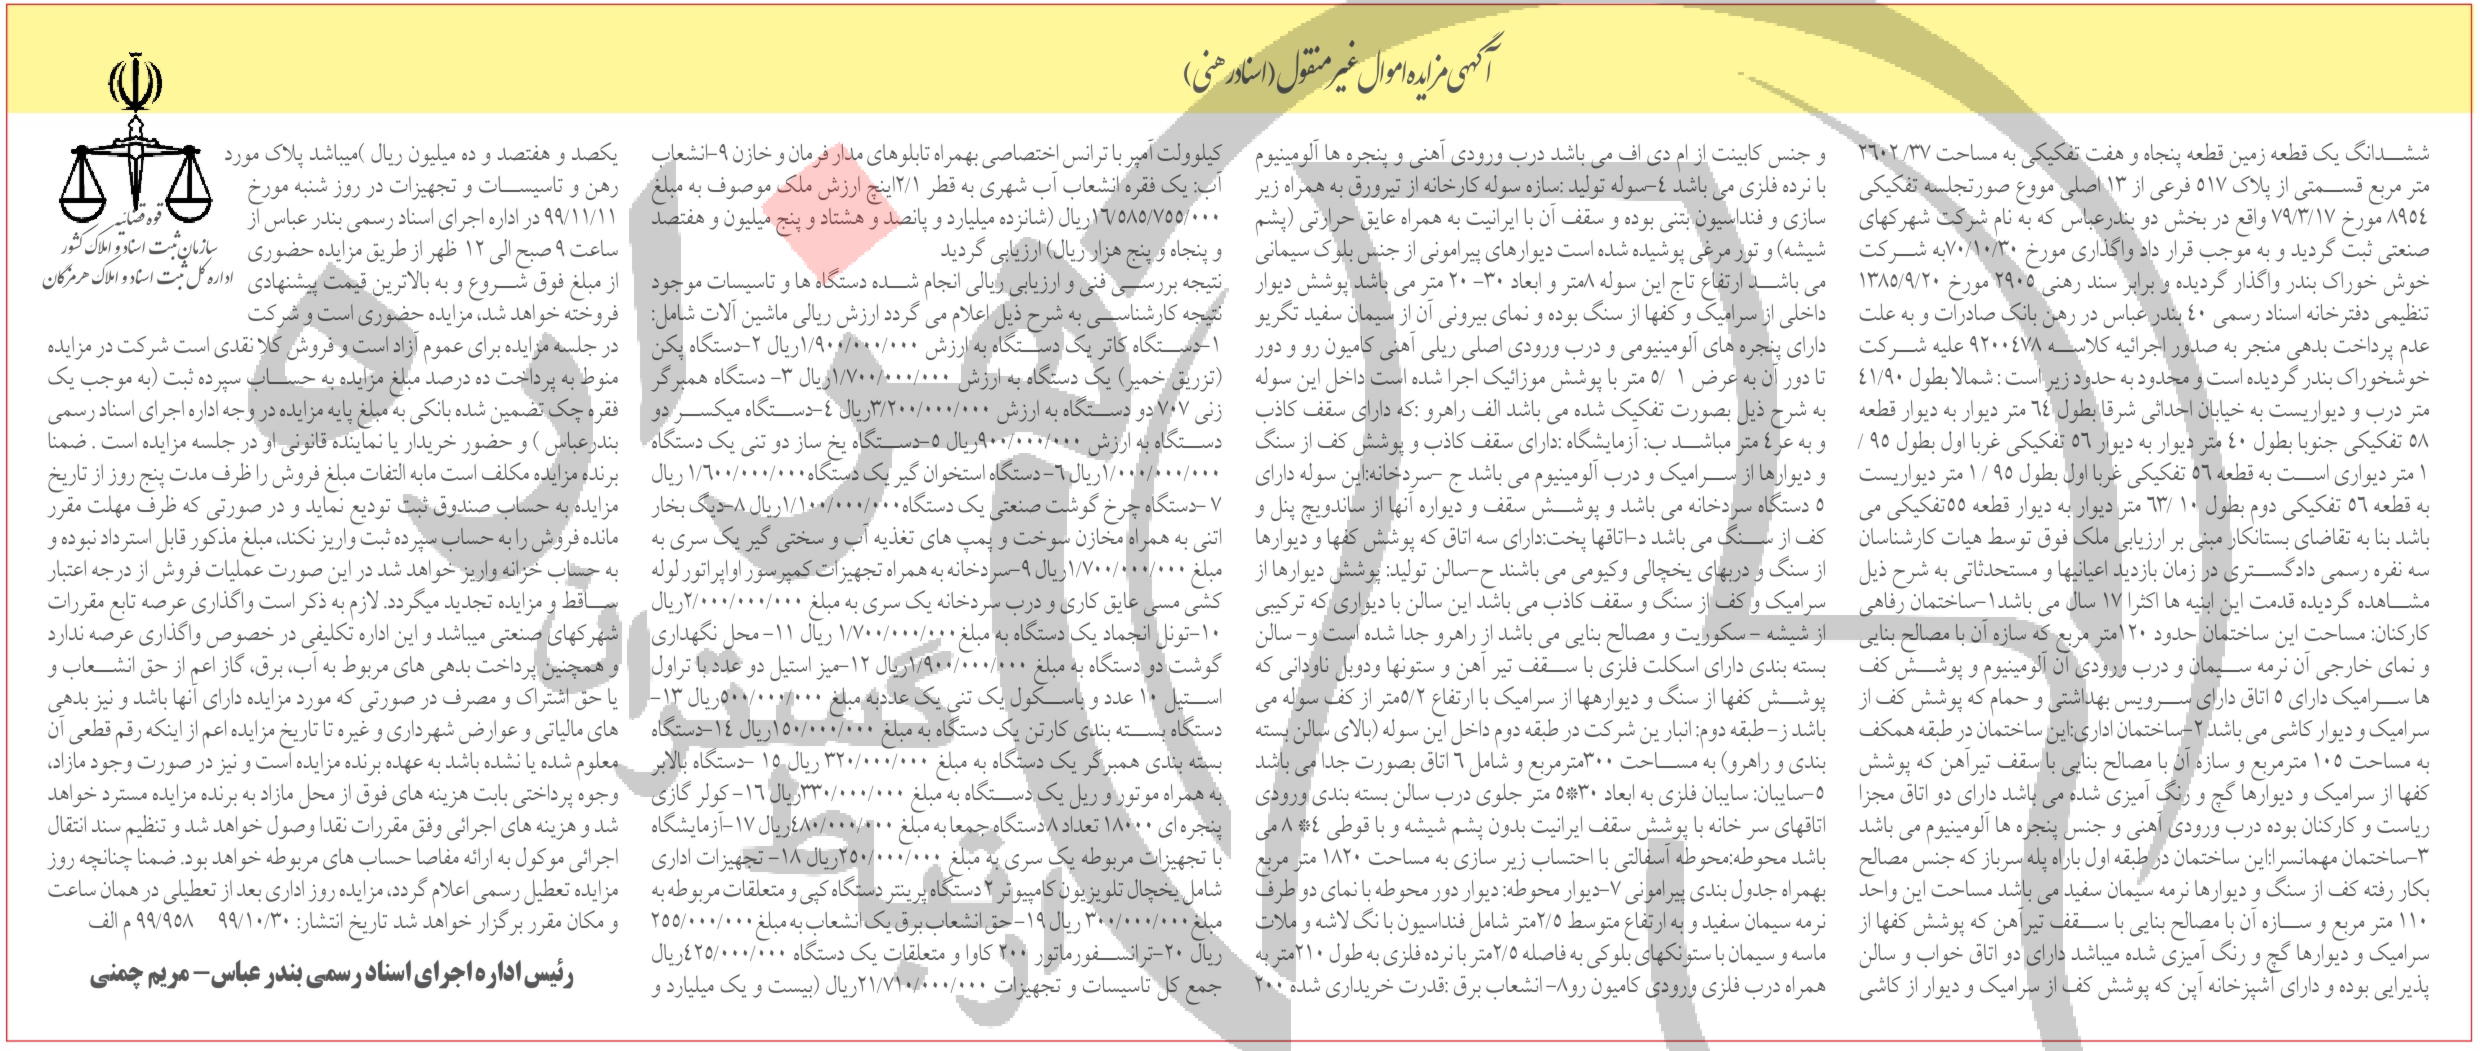 آگهی مزایده اموال غیر منقول (اسناد رهنی)
ششدانگ یک قطعه زمین قطعه پنجاه و هفت تفکیکی به مساحت ۲٦۰۲/۳۷
متر مربع قسمتی از پلاک ۵۱۷ فرعی از ۱۳ اصلی مووع صورتجلسه تفکیکی
۸۹۵٤ مورخ ۷۹/۳/۱۷ واقع در بخش دو بندرعباس که به نام شرکت شهرکهای
صنعتی ثبت گردید و به موجب قرار داد واگذاری مورخ ۷۰/۱۰/۳۰به شرکت
خوش خوراک بندر واگذار گردیده و برابر سند رهنی ۲۹۰۵ مورخ ۱۳۸۵/۹/۲۰
تنظیمی دفترخانه اسناد رسمی ٤۰ بندر عباس در رهن بانک صادرات و به علت
عدم پرداخت بدهی منجر به صدور اجرائیه کلاسه ۹۲۰۰٤۷۸ علیه شرکت
خوشخوراک بندر گردیده است و محدود به حدود زیر است : شمالا بطول ٤۱/۹۰
متر درب و دیواریست به خیابان احداثی شرقا بطول ٦٤ متر دیوار به دیوار قطعه
۵۸ تفکیکی جنوبا بطول ٤۰ متر دیوار به دیوار ۵٦ تفکیکی غربا اول بطول ۹۵ /
۱ متر دیواری است به قطعه ۵٦ تفکیکی غربا اول بطول ۹۵ /۱ متر دیواریست
به قطعه ۵٦ تفکیکی دوم بطول ۱۰ /٦۳ متر دیوار به دیوار قطعه ۵۵تفکیکی می
باشد بنا به تقاضای بستانکار مبنی بر ارزیابی ملک فوق توسط هیات کارشناسان
سه نفره رسمی دادگستری در زمان بازدید اعیانیها و مستحدثاتی به شرح ذیل
مشاهده گردیده قدمت این ابنیه ها اکثرا ۱۷ سال می باشد۱-ساختمان رفاهی
کارکنان: مساحت این ساختمان حدود ۱۲۰متر مربع که سازه آن با مصالح بنایی
و نمای خارجی آن نرمه سیمان و درب ورودی آن آلومینیوم و پوشش کف
ها سرامیک دارای ۵ اتاق دارای سرویس بهداشتی و حمام که پوشش کف از
سرامیک و دیوار کاشی می باشد ۲-ساختمان اداری:این ساختمان در طبقه همکف
به مساحت ۱۰۵ مترمربع و سازه آن با مصالح بنایی با سقف تیرآهن که پوشش
کفها از سرامیک و دیوارها گچ و رنگ آمیزی شده می باشد دارای دو اتاق مجزا
ریاست و کارکنان بوده درب ورودی آهنی و جنس پنجره ها آلومینیوم می باشد
۳-ساختمان مهمانسرا:این ساختمان در طبقه اول باراه پله سرباز که جنس مصالح
بکار رفته کف از سنگ و دیوارها نرمه سیمان سفید می باشد مساحت این واحد
۱۱۰ متر مربع و سازه آن با مصالح بنایی با سقف تیرآهن که پوشش کفها از
سرامیک و دیوارها گچ و رنگ آمیزی شده میباشد دارای دو اتاق خواب و سالن
پذیرایی بوده و دارای آشپزخانه اپن که پوشش کف از سرامیک و دیوار از کاشی
و جنس کابینت از ام دی اف می باشد درب ورودی آهنی و پنجره ها آلومینیوم
با نرده فلزی می باشد ٤-سوله تولید :سازه سوله کارخانه از تیرورق به همراه زیر
سازی و فنداسیون بتنی بوده و سقف آن با ایرانیت به همراه عایق حرارتی (پشم
شیشه) و تور مرغی پوشیده شده است دیوارهای پیرامونی از جنس بلوک سیمانی
می باشد ارتفاع تاج این سوله ۸متر و ابعاد ۳۰- ۲۰ متر می باشد پوشش دیوار
داخلی از سرامیک و کفها از سنگ بوده و نمای بیرونی آن از سیمان سفید تگریو
دارای پنجره های آلومینیومی و درب ورودی اصلی ریلی آهنی کامیون رو و دور
تا دور آن به عرض ۱ /۵ متر با پوشش موزائیک اجرا شده است داخل این سوله
به شرح ذیل بصورت تفکیک شده می باشد الف راهرو :که دارای سقف کاذب
و به عر٤ متر مباشد ب: آزمایشگاه :دارای سقف کاذب و پوشش کف از سنگ
و دیوارها از سرامیک و درب آلومینیوم می باشد ج -سردخانه:این سوله دارای
۵ دستگاه سردخانه می باشد و پوشش سقف و دیواره آنها از ساندویچ پنل و
کف از سنگ می باشد د-اتاقها پخت:دارای سه اتاق که پوشش کفها و دیوارها
از سنگ و دربهای یخچالی وکیومی می باشند ح-سالن تولید: پوشش دیوارها از
سرامیک و کف از سنگ و سقف کاذب می باشد این سالن با دیواری که ترکیبی
از شیشه - سکوریت و مصالح بنایی می باشد از راهرو جدا شده است و- سالن
بسته بندی دارای اسکلت فلزی با سقف تیر آهن و ستونها ودوبل ناودانی که
پوشش کفها از سنگ و دیوارهها از سرامیک با ارتفاع ۵/۲متر از کف سوله می
باشد ز- طبقه دوم: انبار ین شرکت در طبقه دوم داخل این سوله (بالای سالن بسته
بندی و راهرو) به مساحت ۳۰۰مترمربع و شامل ٦ اتاق بصورت جدا می باشد
۵-سایبان: سایبان فلزی به ابعاد ۳۰*۵ متر جلوی درب سالن بسته بندی ورودی
اتاقهای سر خانه با پوشش سقف ایرانیت بدون پشم شیشه و با قوطی ٤* ۸ می
باشد محوطه:محوطه آسفالتی با احتساب زیر سازی به مساحت ۱۸۲۰ متر مربع
بهمراه جدول بندی پیرامونی ۷-دیوار محوطه: دیوار دور محوطه با نمای دو طرف
نرمه سیمان سفید و به ارتفاع متوسط ۲/۵متر شامل فنداسیون با نگ لاشه و ملات
ماسه و سیمان با ستونکهای بلوکی به فاصله ۲/۵متر با نرده فلزی به طول ۲۱۰متر به
همراه درب فلزی ورودی کامیون رو۸- انشعاب برق :قدرت خریداری شده ۲۰۰
کیلوولت آمپر با ترانس اختصاصی بهمراه تابلوهای مدار فرمان و خازن ۹-انشعاب
آب: یک فقره انشعاب آب شهری به قطر ۲/۱اینچ ارزش ملک موصوف به مبلغ
۱٦/۵۸۵/۷۵۵/۰۰۰ریال (شانزده میلیارد و پانصد و هشتاد و پنج میلیون و هفتصد
و پنجاه و پنج هزار ریال) ارزیابی گردید
نتیجه بررسی فنی و ارزیابی ریالی انجام شده دستگاه ها و تاسیسات موجود
نتیجه کارشناسی به شرح ذیل اعلام می گردد ارزش ریالی ماشین آلات شامل:
۱-دستگاه کاتر یک دستگاه به ارزش ۱/۹۰۰/۰۰۰/۰۰۰ریال ۲-دستگاه پکن
(تزریق خمیر) یک دستگاه به ارزش ۱/۷۰۰/۰۰۰/۰۰۰ریال ۳- دستگاه همبرگر
زنی ۷۰۷ دو دستگاه به ارزش ۳/۲۰۰/۰۰۰/۰۰۰ریال ٤-دستگاه میکسر دو
دستگاه به ارزش ۹۰۰/۰۰۰/۰۰۰ریال ۵-دستگاه یخ ساز دو تنی یک دستگاه
۱/۰۰۰/۰۰۰/۰۰۰ریال ٦- دستگاه استخوان گیر یک دستگاه۱/٦۰۰/۰۰۰/۰۰۰ ریال
۷ -دستگاه چرخ گوشت صنعتی یک دستگاه۱/۱۰۰/۰۰۰/۰۰۰ریال ۸-دیگ بخار
اتنی به همراه مخازن سوخت و پمپ های تغذیه آب و سختی گیر یک سری به
مبلغ ۱/۷۰۰/۰۰۰/۰۰۰ریال ۹-سردخانه به همراه تجهیزات کمپرسور اواپراتور لوله
کشی مسی عایق کاری و درب سردخانه یک سری به مبلغ ۲/۰۰۰/۰۰۰/۰۰۰ریال
۱۰-تونل انجماد یک دستگاه به مبلغ ۱/۷۰۰/۰۰۰/۰۰۰ ریال ۱۱- محل نگهداری
گوشت دو دستگاه به مبلغ ۱/۹۰۰/۰۰۰/۰۰۰ریال ۱۲-میز استیل دو عدد با تراول
استیل ۱۰ عدد و باسکول یک تنی یک عددبه مبلغ ۵۰۰/۰۰۰/۰۰۰ریال ۱۳-
دستگاه بسته بندی کارتن یک دستگاه به مبلغ ۱۵۰/۰۰۰/۰۰۰ریال ۱٤-دستگاه
بسته بندی همبرگر یک دستگاه به مبلغ ۳۲۰/۰۰۰/۰۰۰ ریال ۱۵ -دستگاه بالابر
به همراه موتور و ریل یک دستگاه به مبلغ ۳۳۰/۰۰۰/۰۰۰ریال ۱٦- کولر گازی
پنجره ای ۱۸۰۰۰ تعداد ۸دستگاه جمعا به مبلغ ٤۸۰/۰۰۰/۰۰۰ریال ۱۷-آزمایشگاه
با تجهیزات مربوطه یک سری به مبلغ ۲۵۰/۰۰۰/۰۰۰ریال ۱۸- تجهیزات اداری
شامل یخچال تلویزیون کامپیوتر ۲ دستگاه پرینتر دستگاه کپی و متعلقات مربوطه به
مبلغ ۳۰۰/۰۰۰/۰۰۰ ریال ۱۹-حق انشعاب برق یک انشعاب به مبلغ ۲۵۵/۰۰۰/۰۰۰
ریال ۲۰-ترانسفورماتور ۲۰۰ کاوا و متعلقات یک دستگاه ٤۲۵/۰۰۰/۰۰۰ریال
جمع کل تاسیسات و تجهیزات ۲۱/۷۱۰/۰۰۰/۰۰۰ریال (بیست و یک میلیارد و
یکصد و هفتصد و ده میلیون ریال )میباشد پلاک مورد
رهن و تاسیسات و تجهیزات در روز شنبه مورخ
۹۹/۱۱/۱۱ در اداره اجرای اسناد رسمی بندر عباس از
ساعت ۹ صبح الی ۱۲ ظهر از طریق مزایده حضوری
از مبلغ فوق شروع و به بالاترین قیمت پیشنهادی
فروخته خواهد شد، مزایده حضوری است و شرکت
در جلسه مزایده برای عموم آزاد است و فروش کلا نقدی است شرکت در مزایده
منوط به پرداخت ده درصد مبلغ مزایده به حساب سپرده ثبت (به موجب یک
فقره چک تضمین شده بانکی به مبلغ پایه مزایده در وجه اداره اجرای اسناد رسمی
بندرعباس ) و حضور خریدار یا نماینده قانونی او در جلسه مزایده است . ضمنا
برنده مزایده مکلف است مابه التفات مبلغ فروش را ظرف مدت پنج روز از تاریخ
مزایده به حساب صندوق ثبت تودیع نماید و در صورتی که ظرف مهلت مقرر
مانده فروش را به حساب سپرده ثبت واریز نکند، مبلغ مذکور قابل استرداد نبوده و
به حساب خزانه واریز خواهد شد در این صورت عملیات فروش از درجه اعتبار
ساقط و مزایده تجدید میگردد. لازم به ذکر است واگذاری عرصه تابع مقررات
شهرکهای صنعتی میباشد و این اداره تکلیفی در خصوص واگذاری عرصه ندارد
و همچنین پرداخت بدهی های مربوط به آب، برق، گاز اعم از حق انشعاب و
یا حق اشتراک و مصرف در صورتی که مورد مزایده دارای آنها باشد و نیز بدهی
های مالیاتی و عوارض شهرداری و غیره تا تاریخ مزایده اعم از اینکه رقم قطعی آن
معلوم شده یا نشده باشد به عهده برنده مزایده است و نیز در صورت وجود مازاد،
وجوه پرداختی بابت هزینه های فوق از محل مازاد به برنده مزایده مسترد خواهد
شد و هزینه های اجرائی وفق مقررات نقدا وصول خواهد شد و تنظیم سند انتقال
اجرائی موکول به ارائه مفاصا حساب های مربوطه خواهد بود. ضمنا چنانچه روز
مزایده تعطیل رسمی اعلام گردد، مزایده روز اداری بعد از تعطیلی در همان ساعت
و مکان مقرر برگزار خواهد شد تاریخ انتشار: ۹۹/۱۰/۳۰ ۹۹/۹۵۸ م الف
رئیس اداره اجرای اسناد رسمی بندر عباس- مریم چمنی
قوه قضائیه
سازمان ثبت اسناد و املاک کشور
اداره کل ثبت اسناد و املاک هرمزگان
هزاره
گستران
ارتباط